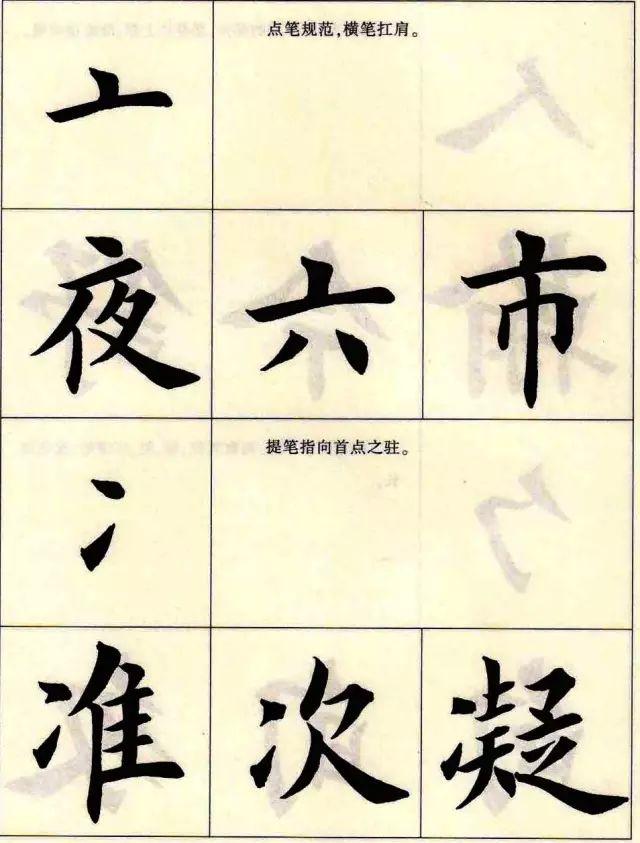 点笔规范,横笔扛肩。
亠
夜 六 市
提笔指向首点之驻。
冫
准 次 凝